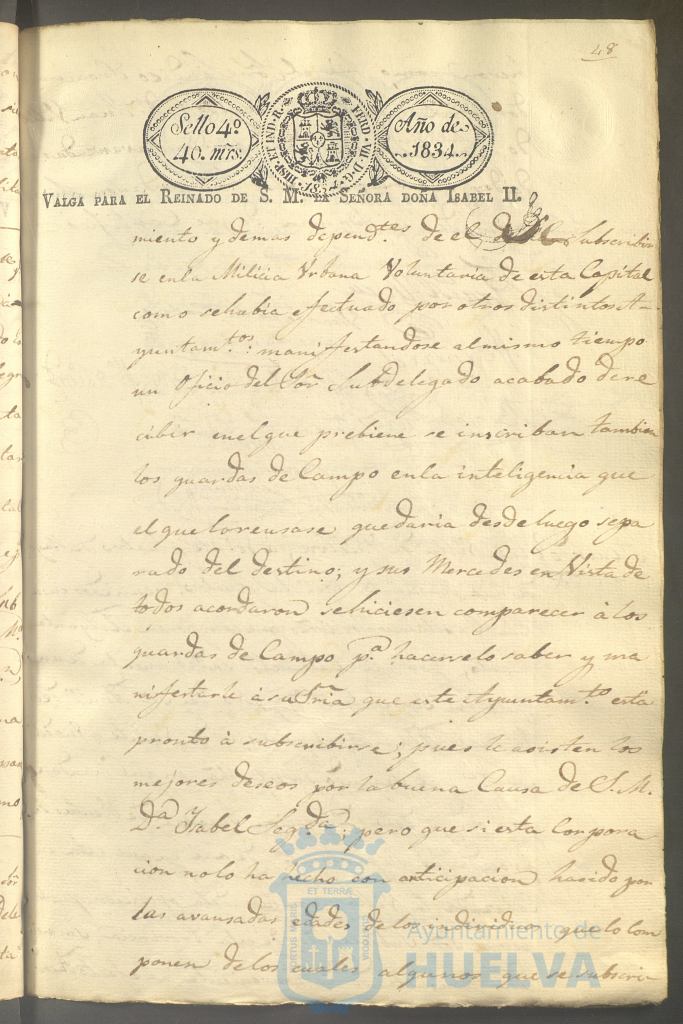 48
Sello 4º
40. mrs.
HISP. ET IND. R. FERD. VII. D. G.
1834
Año de
1834.
VALGA PARA EL REINADO DE S. M. LA SEÑORA DOÑA ISABEL II.
miento y demas depend.tes de el Subscribir
se enla Milicia Urbana Voluntaria de esta Capital
como sehabia efectuado por otros distintos A-
yuntam.tos: manifestandose almismo tiempo
un Oficio del Sor Subdelegado acabado dere
cibir enelque prebiene se inscriban tambien
los guardas de Campo enla inteligencia que
el que loreusase quedaria desde luego sepa
rado del destino; y sus Mercedes en Vista de
todos acordaron sehiciesen comparecer à los
guardas de Campo pª hacerselo saber y ma
nifestarle à su Sria que este Ayuntam.to està
pronto à subscribirse; pues le asisten los
mejores deseos por la buena Causa de S. M.
Dª Isabel Seg.da; pero que si esta Corpora
cion nolo ha hecho con anticipacion hasido por
las avansadas edades de los individuos que lo com
ponen de los cuales algunos que se subscri-
PORTUS MARIS
ET TERRÆ
CUSTODIA
Ayuntamiento de
HUELVA